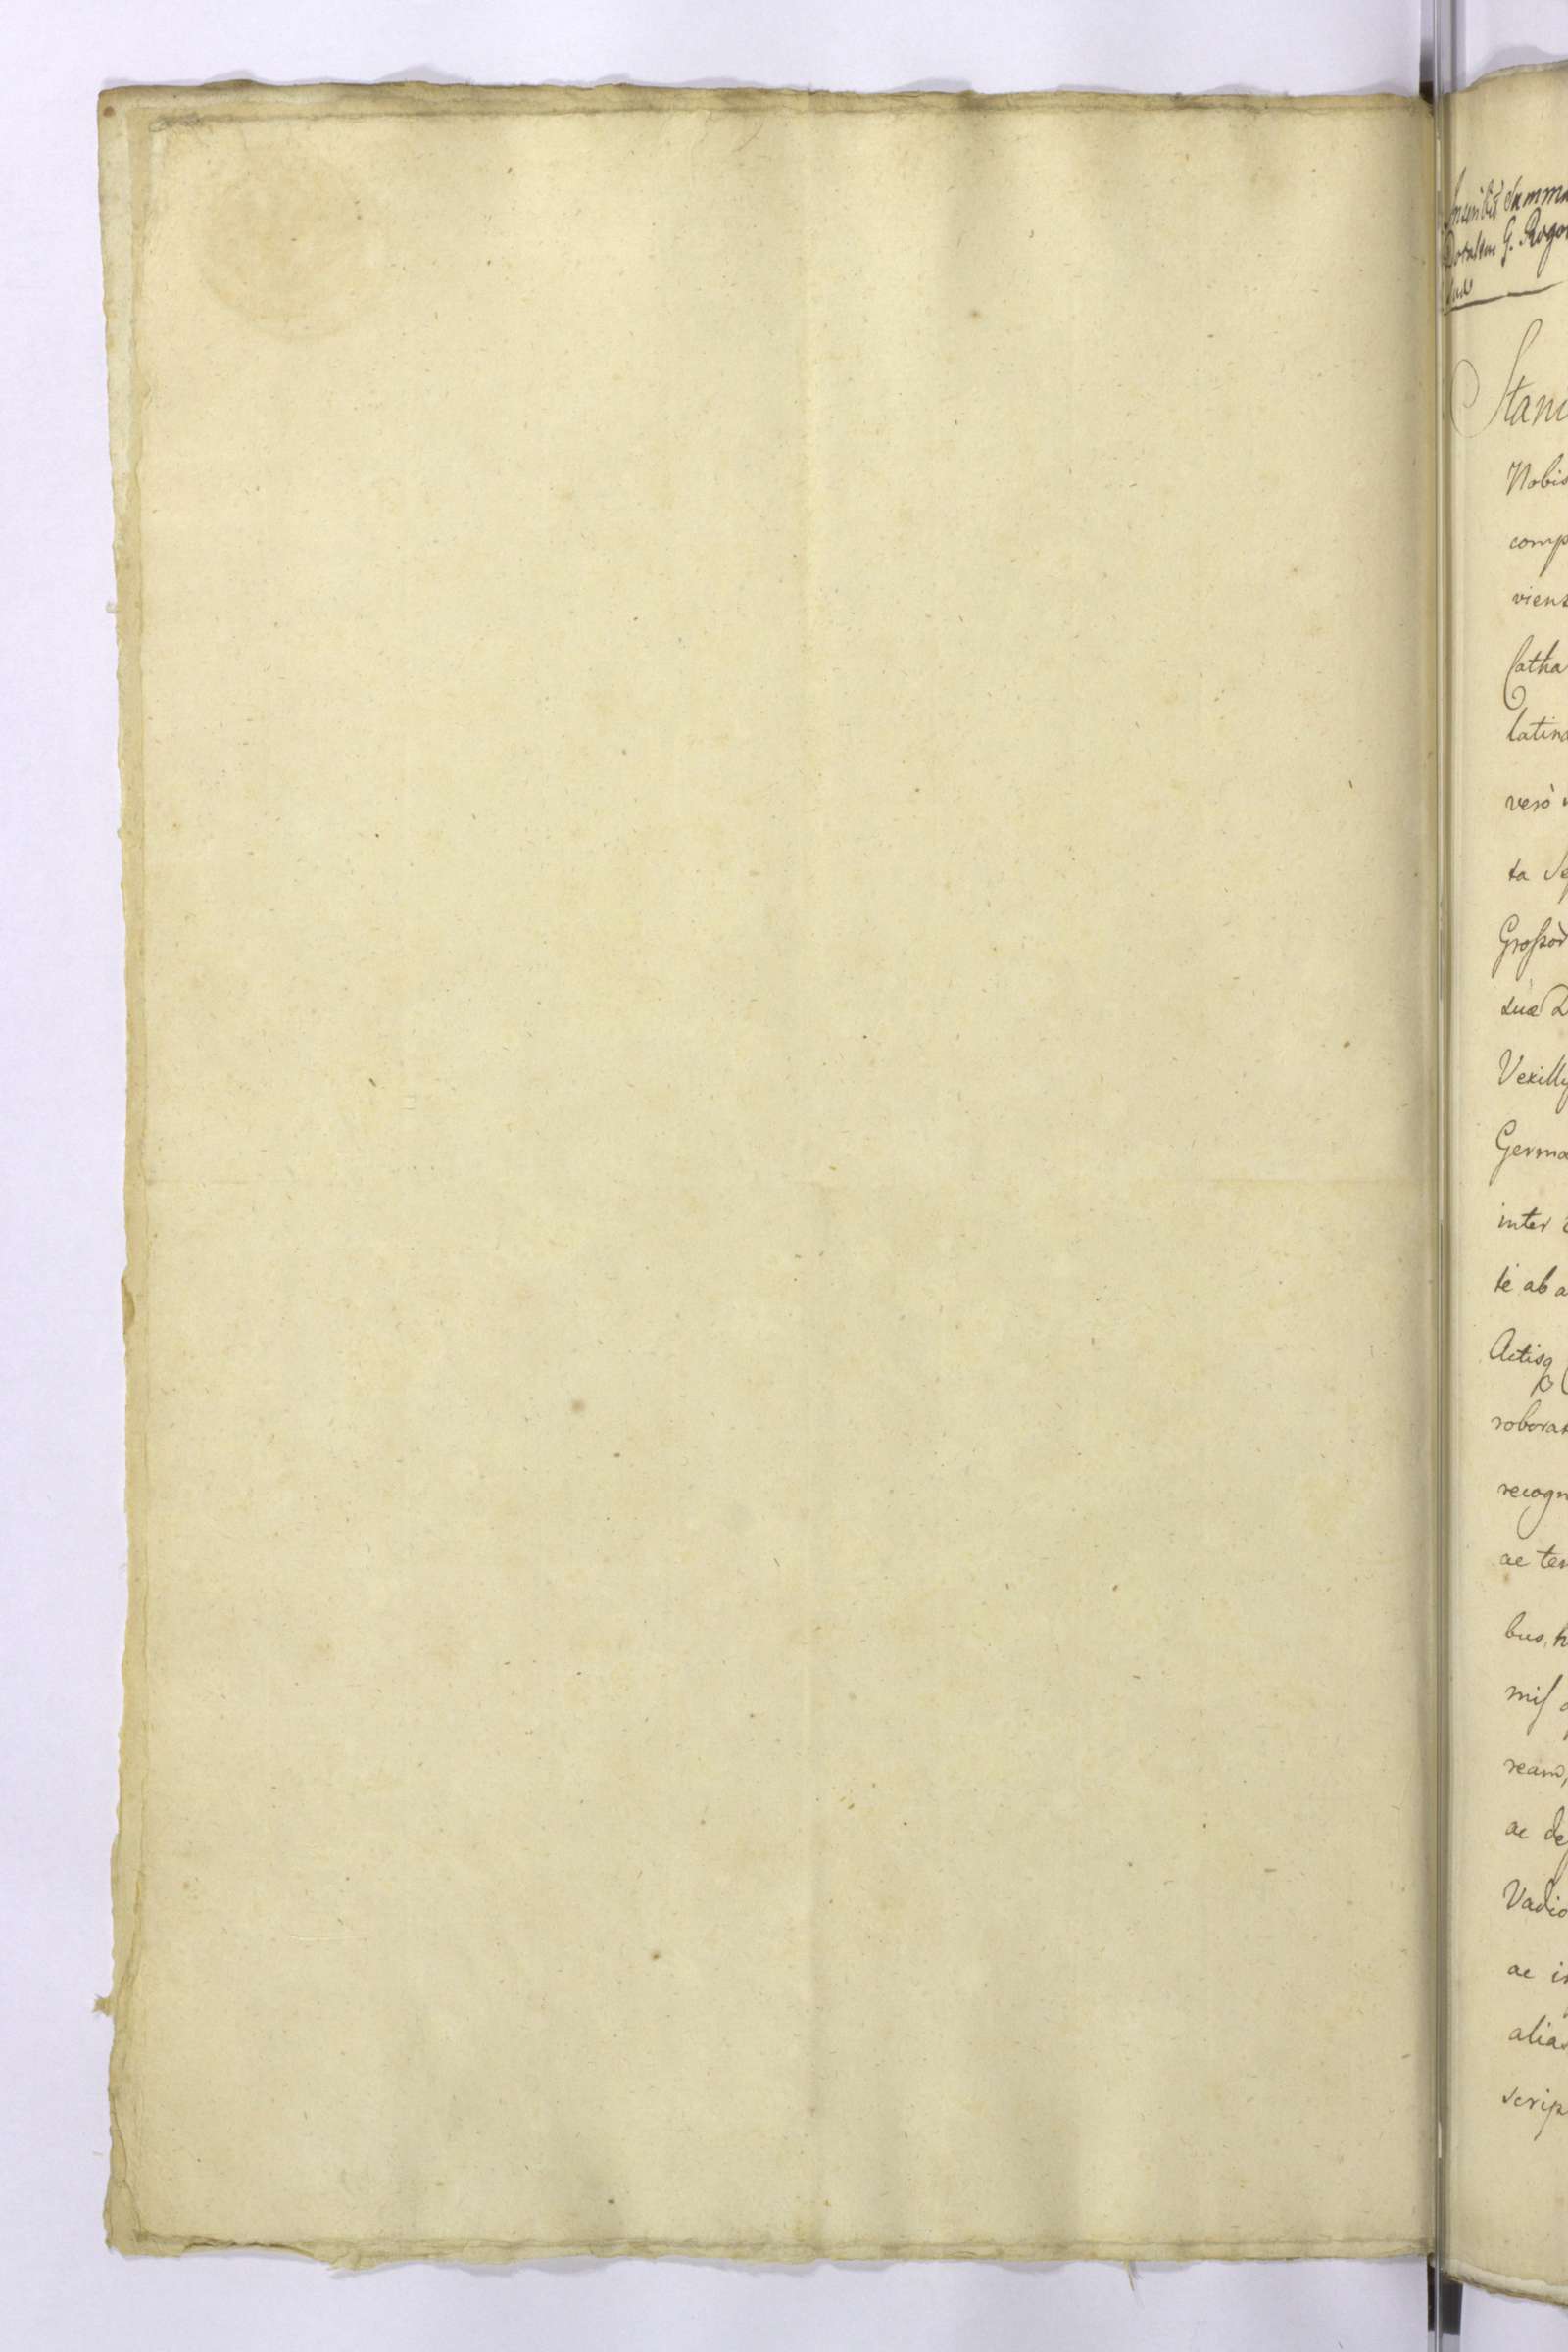 Summa
G.
Stani
Nobis
comp
vient
Catha
latina
verò
ta Se
Großor
suæ D
Vexilly
Germa
inter
te ab a
Actisq
roborat
recogn
ae ter
bus, h
miss
ream,
ac de
Vadio
ac i
alias
scrip